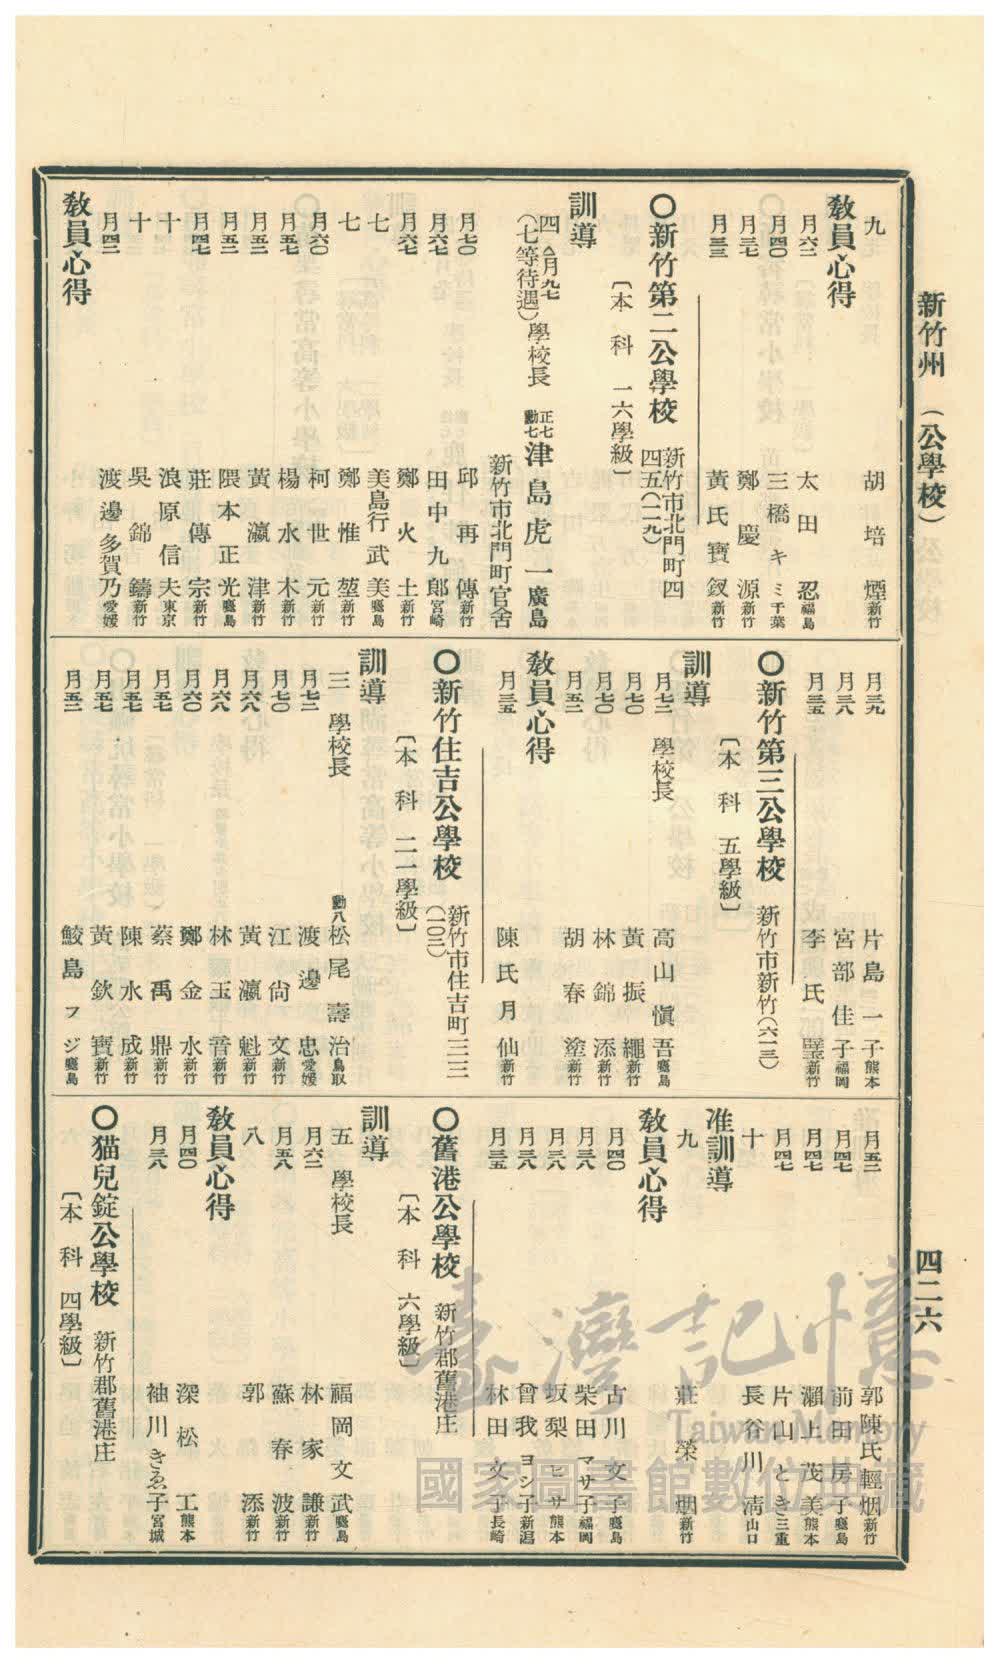 新竹州 (公學校)
四二六
九 胡培煙 新竹
教員心得
月六二 太田忍 福島
月四〇 三橋キミ 千葉
月三七 鄭慶源 新竹
月三三 黃氏寶釵 新竹
〇新竹第二公學校 新竹市北門町四四五(一二九)
〔本科 一六學級〕
訓導
四 △月九七 (七等待遇) 學校長 正七勳七 津島虎一 廣島
新竹市北門町官舍
月七〇 邱再傳 新竹
月六七 田中九郎 宮崎
月六七 鄭火土 新竹
七 美島行武美 鹿兒島
七 鄭惟堃 新竹
月六〇 柯世元 新竹
月五七 楊水木 新竹
月五二 黃瀛津 新竹
月五二 隈本正光 鹿兒島
月四七 莊傳宗 新竹
十 浪原信夫 東京
十 吳錦鑄 新竹
月四二 渡邊多賀乃 愛媛
教員心得
月三九 片島一子 熊本
月三八 宮部佳子 福岡
月三五 李氏 新竹
〇新竹第三公學校 新竹市新竹(六一三)
〔本科 五學級〕
訓導
月七二 學校長 高山愼吾 鹿兒島
月七〇 黃振繩 新竹
月七〇 林錦添 新竹
月五二 胡春塗 新竹
教員心得
月三五 陳氏月仙 新竹
〇新竹住吉公學校 新竹市住吉町三三三(一〇三)
〔本科 二一學級〕
訓導
三 學校長 勳八 松尾壽治 鳥取
月七二 渡邊忠 愛媛
月七〇 江尙文 新竹
月六八 黃瀛魁 新竹
月六八 林玉音 新竹
月六〇 鄭金水 新竹
月五七 蔡禹鼎 新竹
月五七 陳水成 新竹
月五七 黃欽寶 新竹
月五二 鮫島フジ 鹿兒島
月五二 郭陳氏輕烟 新竹
月四七 前田房子 鹿兒島
月四七 瀨上茂美 熊本
月四七 片山とき 三重
十 長谷川淸 山口
准訓導
九 莊榮烟 新竹
教員心得
月四〇 古川文子 鹿兒島
月三八 柴田マサ子 福岡
月三八 坂梨ヒサ 熊本
月三八 曾我ヨシ子 新潟
月三五 林田文子 長崎
〇舊港公學校 新竹郡舊港庄
〔本科 六學級〕
訓導
五 學校長 福岡文武 鹿兒島
月六二 林家謙 新竹
月五八 蘇春波 新竹
八 郭添 新竹
教員心得
月四〇 深松工 熊本
月三八 袖川きゑ子 宮城
〇猫兒錠公學校 新竹郡舊港庄
〔本科 四學級〕
臺灣記憶
Taiwan Memory
國家圖書館數位典藏